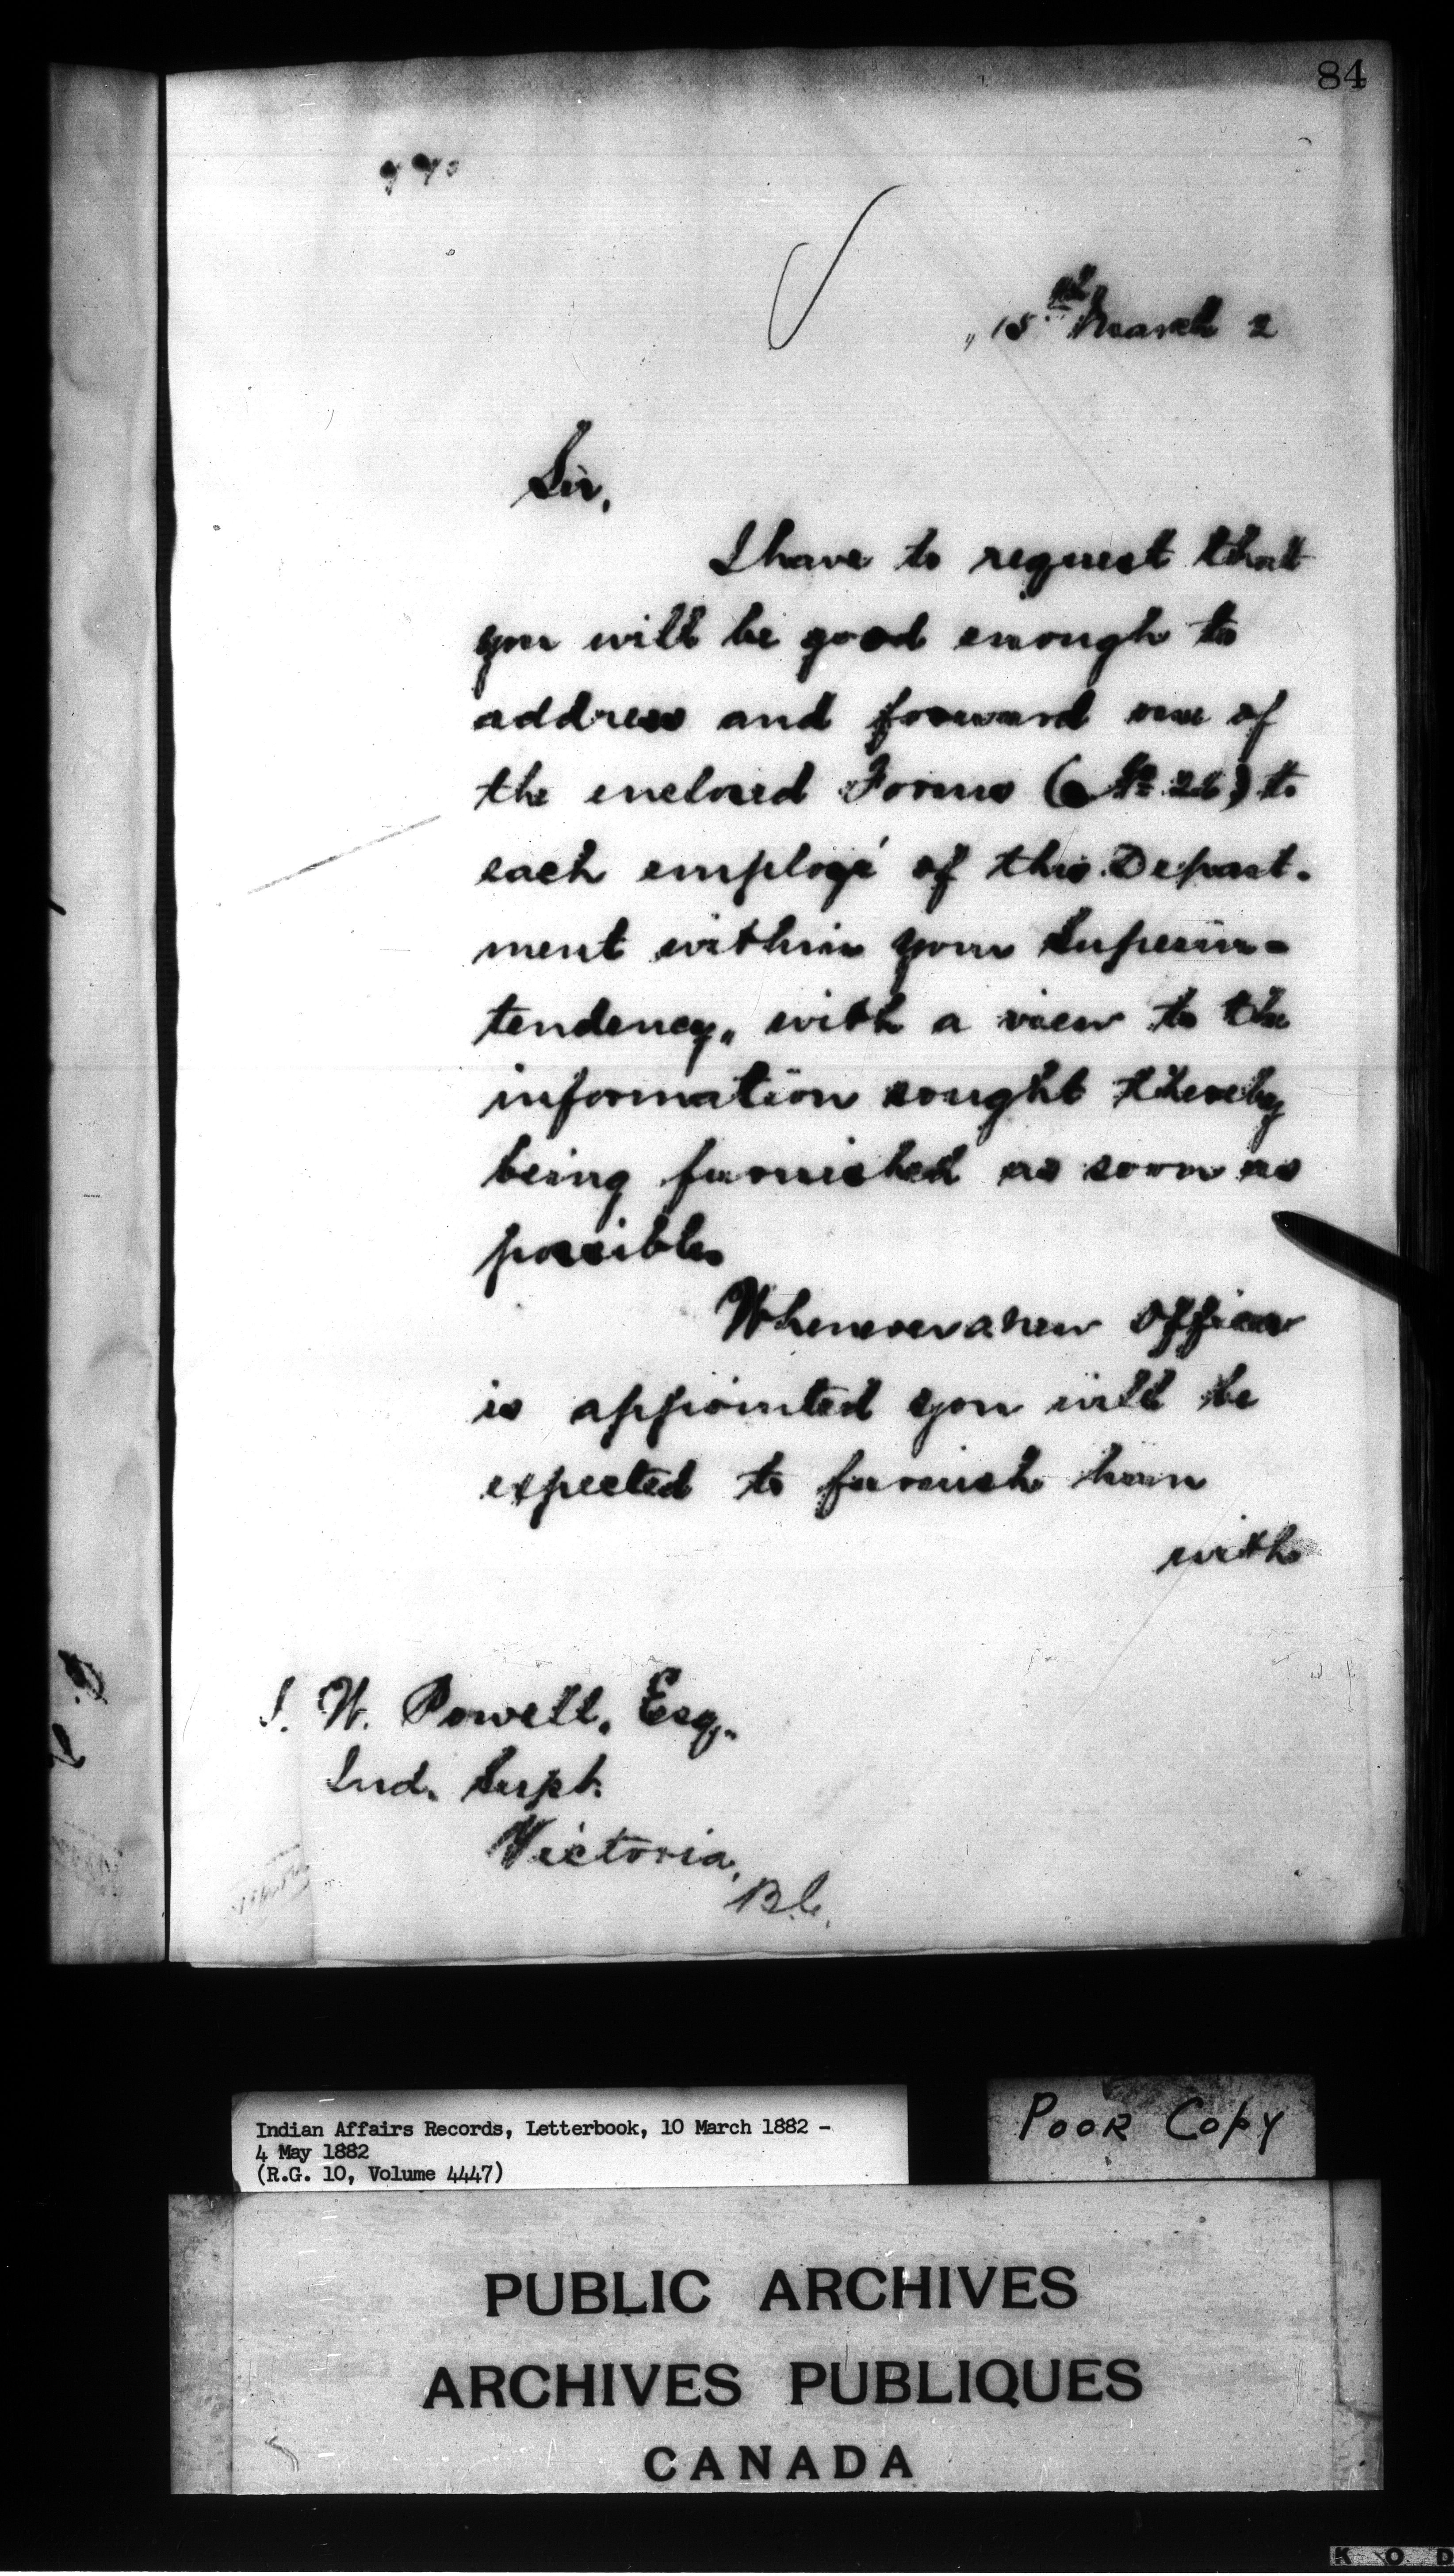 84
15th March 2
Sir,
I have to request that
you will be good enough to
address and forward one of
the enclosed Forms (No 26) to
each employé of this Depart-
ment within your Superin-
tendency, with a view to the
information sought thereby
being furnished as soon as
possible.
Whenever a new Officer
is appointed you will be
expected to furnish him
with
I. W. Powell, Esq.
Ind. Supt.
Victoria,
B.C.
Indian Affairs Records, Letterbook, 10 March 1882 -
4 May 1882
(R.G. 10, Volume 4447)
POOR COPY
PUBLIC ARCHIVES
ARCHIVES PUBLIQUES
CANADA